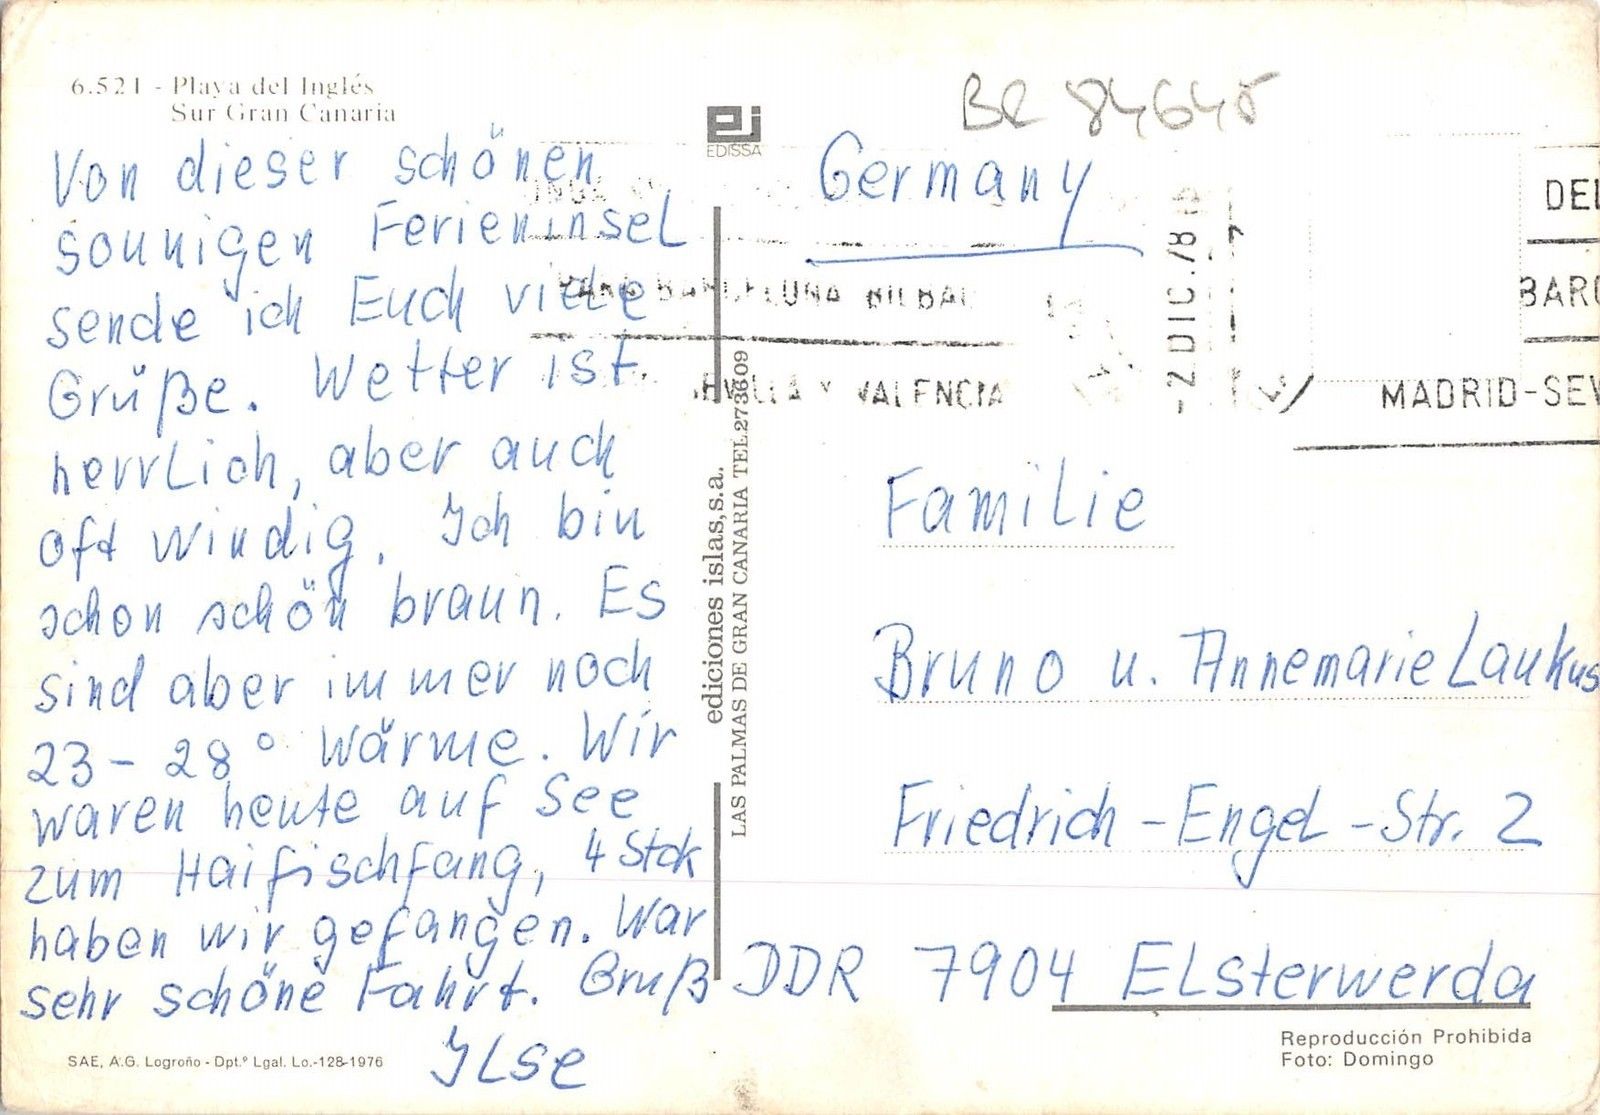 6.521 - Playa del Inglés
Sur Gran Canaria
Von dieser schönen
sonnigen Ferieninsel
sende ich Euch viele
Grüße. Wetter ist
herrlich, aber auch
oft windig. Ich bin
schon schön braun. Es
sind aber immer noch
23 - 28° Wärme. Wir
waren heute auf See
zum Haifischfang, 4 Stck
haben wir gefangen. War
sehr schöne Fahrt. Gruß
Ilse
SAE, A.G. Logroño - Dpt.º Lgal. Lo.-128-1976
ei
EDISSA
ediciones islas,s.a.
LAS PALMAS DE GRAN CANARIA TEL.273609
BR 84645
Germany
BARCELONA BILBAO
SEVILLA Y VALENCIA
-2 DIC. 78
DEL
BARC
MADRID-SEV
Familie
Bruno u. Annemarie Laukus
Friedrich - Engel - Str. 2
DDR 7904 Elsterwerda
Reproducción Prohibida
Foto: Domingo